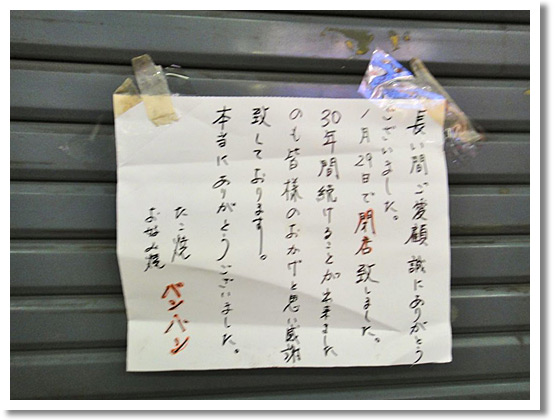 長い間ご愛顧誠にありがとう
ございました。
1月29日で閉店致しました。
30年間続けることが出来ました
のも皆様のおかげと思い感謝
致しております。
本当にありがとうございました。
たこ焼
お好み焼
ペンペン